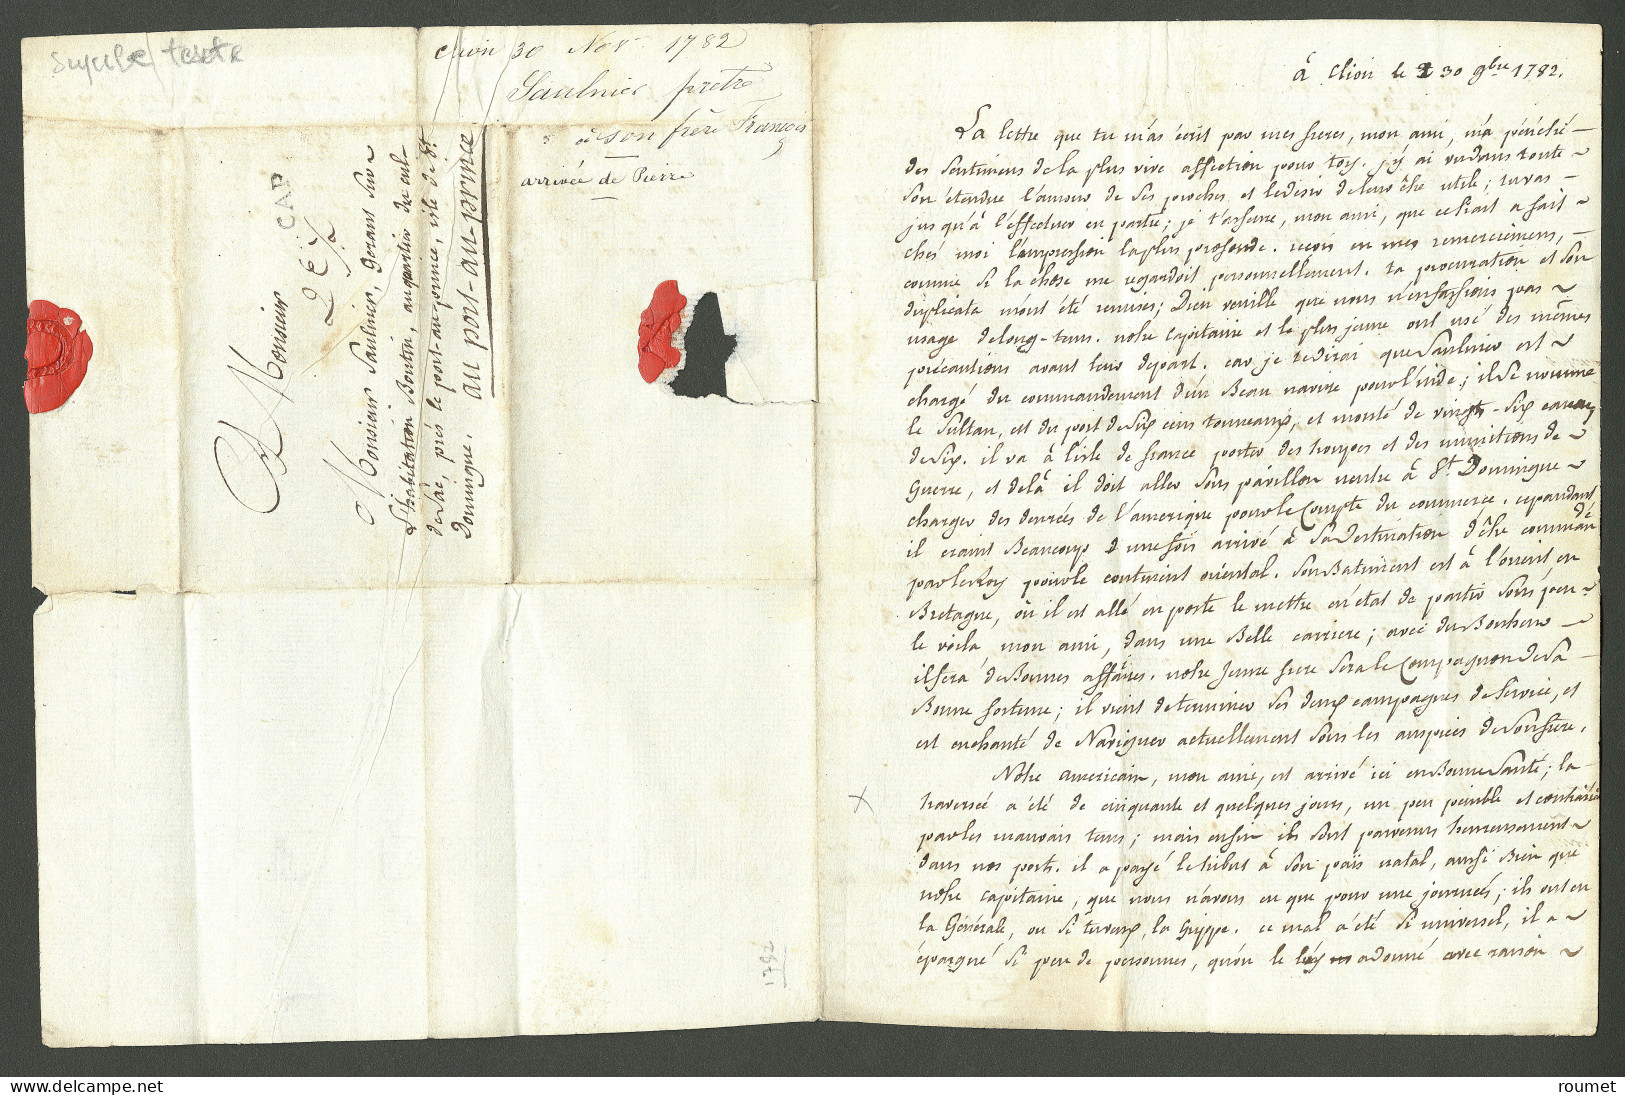 Clion 30 Nov 1782
Saulnier prêtre
à son frère François
arrivée de Pierre
CAP
Monsieur
Monsieur Saulnier, gerant sur
L'habitation Boutin, au quartier du cul-
de sac, prés le port-au-prince, isle de St.
Domingue.
au port-au-prince
1782
à Clion le 30 9bre 1782.
La lettre que tu m'as écrit par mes freres, mon ami, m'a pénétré
des sentimens de la plus vive affection pour toy. j'y ai vu dans toute
son étendue l'amour de ses proches et le desir de leur être utile; tu vas
jusqu'à l'effectuer en partie; je t'assure, mon ami, que ce trait a fait
chés moi l'impression la plus profonde. reçois en mes remerciemens,
comme si la chose me regardoit personnellement. ta procuration et son
duplicata m'ont été remises; Dieu veuille que nous n'en fassions pas
usage de long-tems. notre capitaine et le plus jeune ont usé des mêmes
précautions avant leur depart. car je te dirai que Saulnier est
chargé du commandement d'un Beau navire pour l'inde; il se nomme
le Sultan, est du port de six cens tonneaux, et monté de vingt-six canons
de six. il va à l'isle de france porter des troupes et des munitions de
Guerre, et delà il doit aller sous pavillon neutre à St. Domingue
charger des denrées de l'amerique pour le Compte du commerce. cependant
il craint Beaucoup d'une fois arrivé à sa destination d'être commandé
par le Roy pour le continent oriental. son Batiment est à l'orient en
Bretagne, où il est allé en poste le mettre en état de partir sous peu
le voila mon ami, dans une Belle carriere; avec du Bonheur
il fera de Bonnes affaires. notre jeune frere sera le Compagnon de sa
Bonne fortune; il vient de terminer ses deux campagnes de service, et
est enchanté de Naviguer actuellement sous les auspices de son frere.
Nôtre americain, mon ami, est arrivé ici en Bonne santé; la
traversée a été de cinquante et quelques jours, un peu penible et contrariée
par les mauvais tems; mais enfin ils sont parvenus heureusement
dans nos ports. il a payé le tribut à son païs natal, aussi Bien que
notre capitaine, que nous n'avons eu que pour une journée; ils ont eu
la Générale, ou si tu veux, la Grippe. ce mal a été si universel, il a
épargné si peu de personnes, qu'on le a donné avec raison